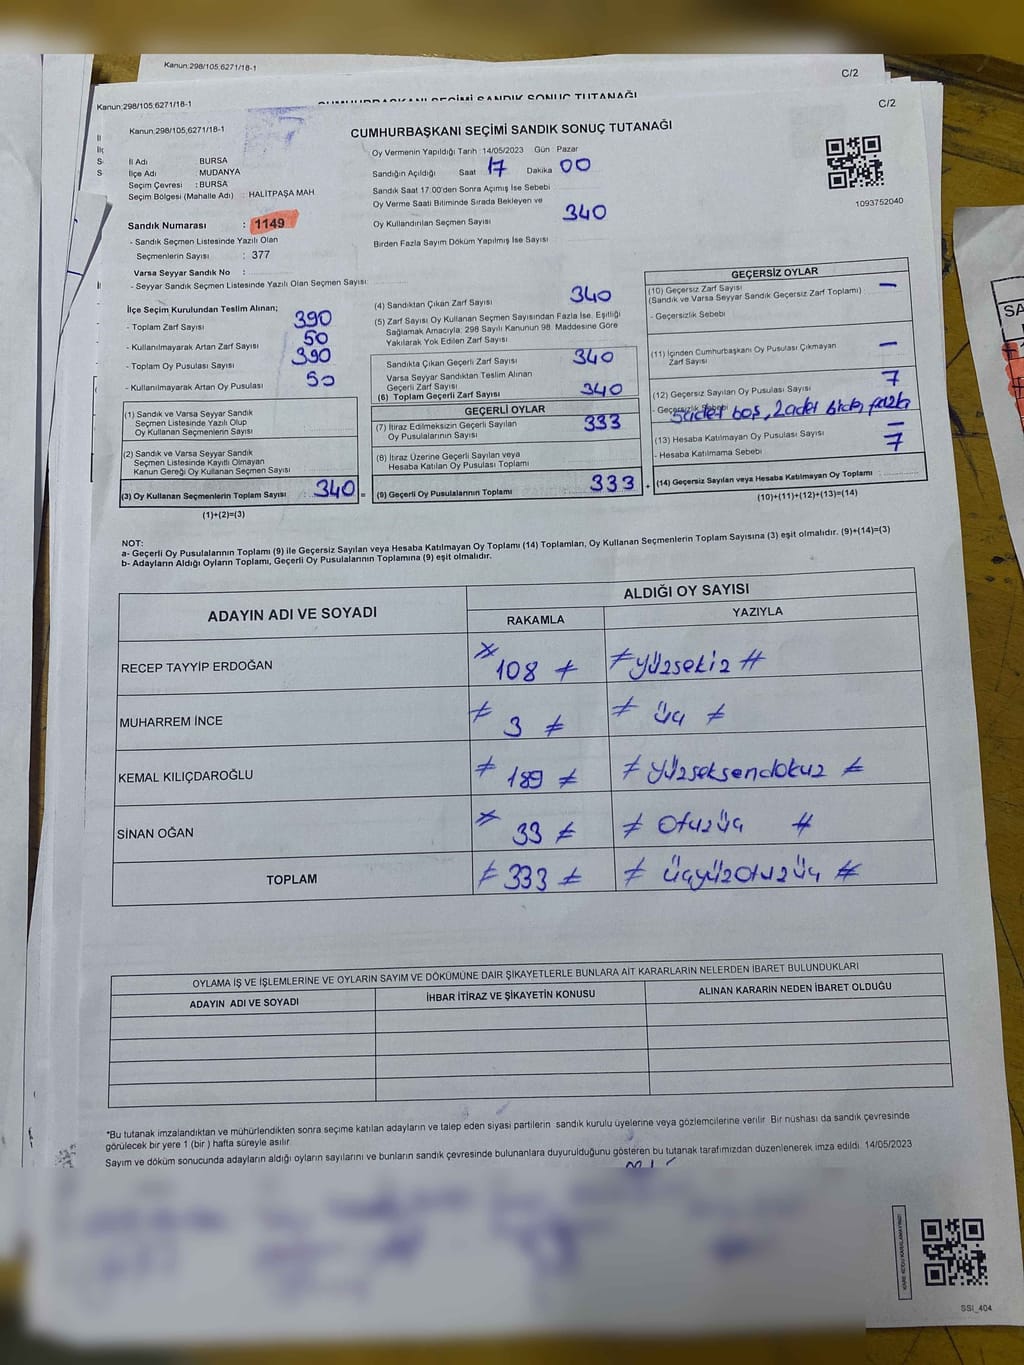 Kanun:298/105,6271/18-1
C/2
Kanun:298/105,6271/18-1
CUMHURBAŞKANI SEÇİMİ SANDIK SONUÇ TUTANAĞI
Kanun:298/105,6271/18-1
C/2
CUMHURBAŞKANI SEÇİMİ SANDIK SONUÇ TUTANAĞI
İl Adı BURSA
İlçe Adı : MUDANYA
Seçim Çevresi : BURSA
Seçim Bölgesi (Mahalle Adı) : HALİTPAŞA MAH.
Oy Vermenin Yapıldığı Tarih :14/05/2023 Gün : Pazar
Sandığın Açıldığı Saat 17 Dakika 00
Sandık Saat 17:00'den Sonra Açımış İse Sebebi
Oy Verme Saati Bitiminde Sırada Bekleyen ve
Oy Kullandırılan Seçmen Sayısı 340
Birden Fazla Sayım Döküm Yapılmış İse Sayısı
1093752040
Sandık Numarası : 1149
- Sandık Seçmen Listesinde Yazılı Olan
Seçmenlerin Sayısı : 377
Varsa Seyyar Sandık No :
- Seyyar Sandık Seçmen Listesinde Yazılı Olan Seçmen Sayısı:
İlçe Seçim Kurulundan Teslim Alınan;
- Toplam Zarf Sayısı 390
- Kullanılmayarak Artan Zarf Sayısı 50
- Toplam Oy Pusulası Sayısı 390
- Kullanılmayarak Artan Oy Pusulası 50
(1) Sandık ve Varsa Seyyar Sandık
Seçmen Listesinde Yazılı Olup
Oy Kullanan Seçmenlerin Sayısı
(2) Sandık ve Varsa Seyyar Sandık
Seçmen Listesinde Kayıtlı Olmayan
Kanun Gereği Oy Kullanan Seçmen Sayısı
(3) Oy Kullanan Seçmenlerin Toplam Sayısı 340 =
(1)+(2)=(3)
(4) Sandıktan Çıkan Zarf Sayısı 340
(5) Zarf Sayısı Oy Kullanan Seçmen Sayısından Fazla İse, Eşitliği
Sağlamak Amacıyla: 298 Sayılı Kanunun 98. Maddesine Göre
Yakılarak Yok Edilen Zarf Sayısı
Sandıkta Çıkan Geçerli Zarf Sayısı 340
Varsa Seyyar Sandıktan Teslim Alınan
Geçerli Zarf Sayısı
(6) Toplam Geçerli Zarf Sayısı 340
GEÇERLİ OYLAR
(7) İtiraz Edilmeksizin Geçerli Sayılan
Oy Pusulalarının Sayısı 333
(8) İtiraz Üzerine Geçerli Sayılan veya
Hesaba Katılan Oy Pusulası Toplamı
(9) Geçerli Oy Pusulalarının Toplamı 333 +
GEÇERSİZ OYLAR
(10) Geçersiz Zarf Sayısı —
(Sandık ve Varsa Seyyar Sandık Geçersiz Zarf Toplamı)
- Geçersizlik Sebebi
(11) İçinden Cumhurbaşkanı Oy Pusulası Çıkmayan
Zarf Sayısı —
(12) Geçersiz Sayılan Oy Pusulası Sayısı 7
- Geçersizlik Sebebi 5 adet boş, 2 adet birden fazla
(13) Hesaba Katılmayan Oy Pusulası Sayısı —
- Hesaba Katılmama Sebebi 7
(14) Geçersiz Sayılan veya Hesaba Katılmayan Oy Toplamı
(10)+(11)+(12)+(13)=(14)
NOT:
a- Geçerli Oy Pusulalarının Toplamı (9) ile Geçersiz Sayılan veya Hesaba Katılmayan Oy Toplamı (14) Toplamları, Oy Kullanan Seçmenlerin Toplam Sayısına (3) eşit olmalıdır. (9)+(14)=(3)
b- Adayların Aldığı Oyların Toplamı, Geçerli Oy Pusulalarının Toplamına (9) eşit olmalıdır.
ADAYIN ADI VE SOYADI ALDIĞI OY SAYISI
RAKAMLA YAZIYLA
RECEP TAYYİP ERDOĞAN 108 Yüzsekiz
MUHARREM İNCE 3 üç
KEMAL KILIÇDAROĞLU 189 Yüzseksendokuz
SİNAN OĞAN 33 Otuzüç
TOPLAM 333 üçyüzotuzüç
OYLAMA İŞ VE İŞLEMLERİNE VE OYLARIN SAYIM VE DÖKÜMÜNE DAİR ŞİKAYETLERLE BUNLARA AİT KARARLARIN NELERDEN İBARET BULUNDUKLARI
ADAYIN ADI VE SOYADI İHBAR İTİRAZ VE ŞİKAYETİN KONUSU ALINAN KARARIN NEDEN İBARET OLDUĞU
*Bu tutanak imzalandıktan ve mühürlendikten sonra seçime katılan adayların ve talep eden siyasi partilerin sandık kurulu üyelerine veya gözlemcilerine verilir. Bir nüshası da sandık çevresinde
görülecek bir yere 1 (bir ) hafta süreyle asılır.
Sayım ve döküm sonucunda adayların aldığı oyların sayılarını ve bunların sandık çevresinde bulunanlara duyurulduğunu gösteren bu tutanak tarafımızdan düzenlenerek imza edildi. 14/05/2023
SSI_404